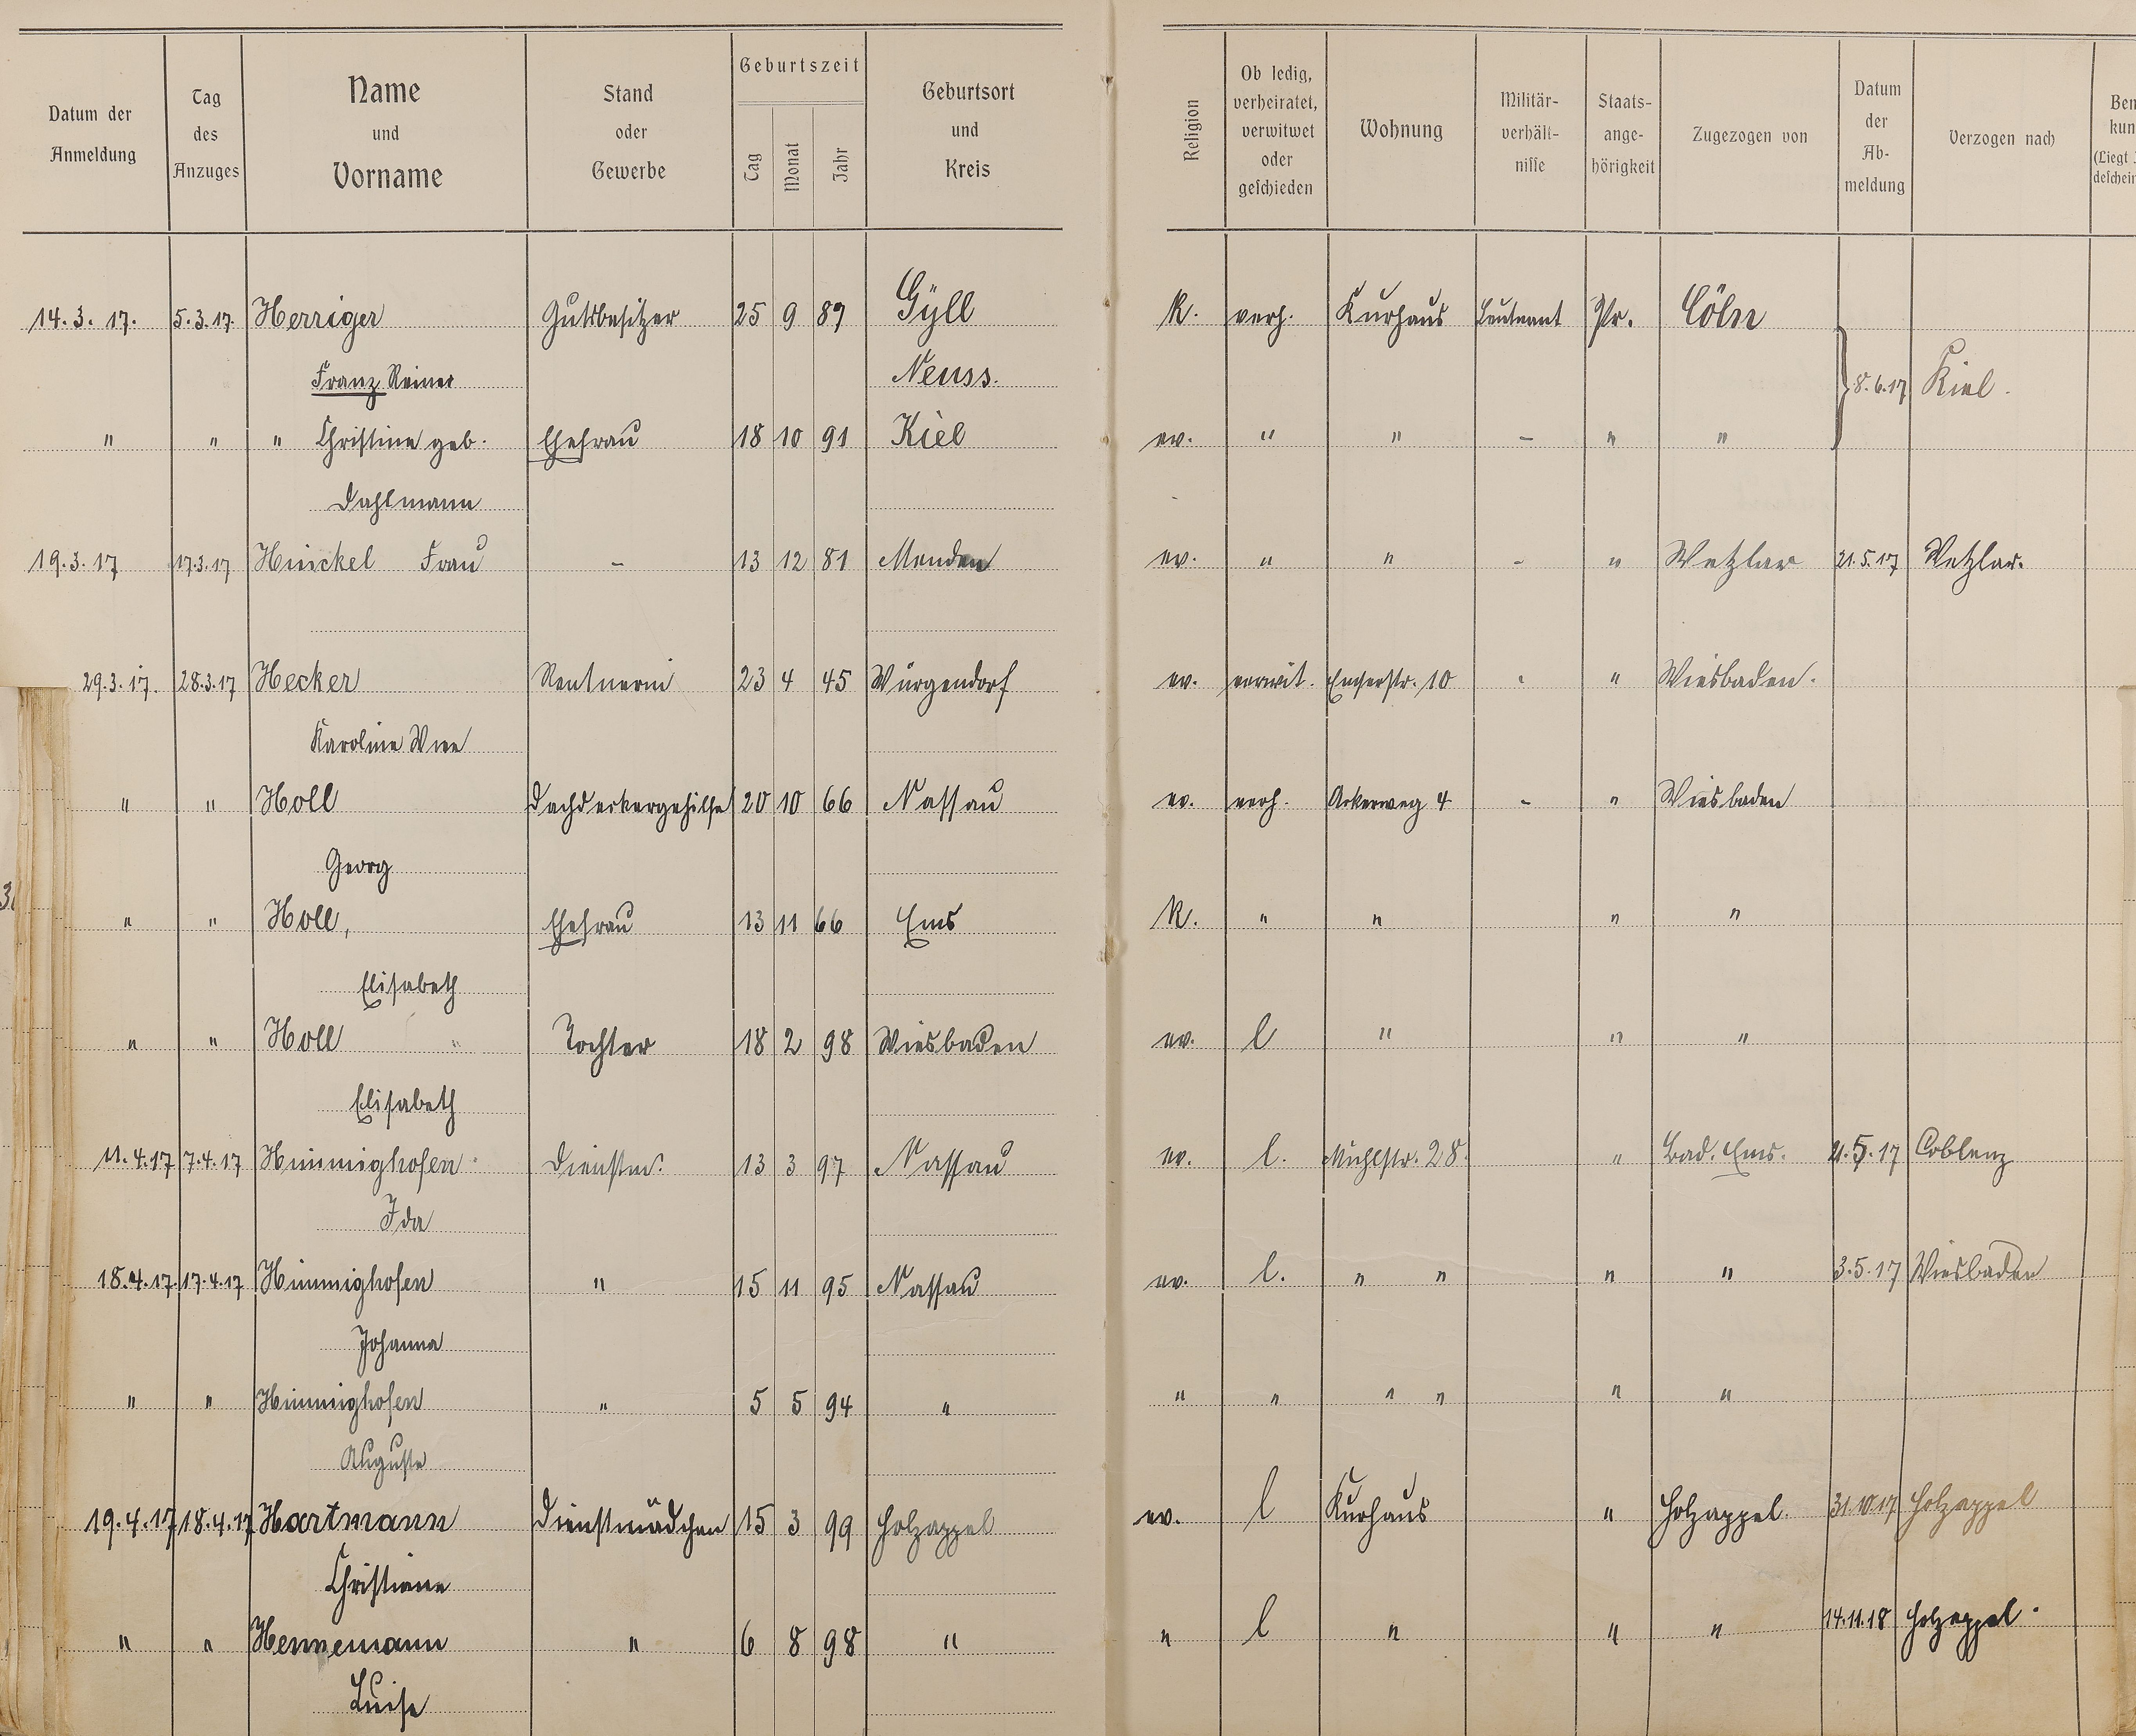 Datum der Anmeldung Tag des Anzuges Name und Vorname Stand oder Gewerbe Geburtszeit Tag Monat Jahr Geburtsort und Kreis Religion Ob ledig, verheiratet, verwitwet oder geschieden Wohnung Militär-verhält-nisse Staats-ange-hörigkeit Zugezogen von Datum der Ab-meldung Verzogen nach
14.3.17. 5.3.17. Herriger Gutsbesitzer 25 9 89 Gÿll K. verh. Kurhaus Leutnant Pr. Cöln
Franz Reiner Neuss. 8.6.17 Kiel.
" " " Christine geb. Ehefrau 18 10 91 Kiel ev. " " - " "
Dahlmann
19.3.17 17.3.17 Heuckel Frau - 13 12 81 Menden ev. " " - " Wetzlar 21.5.17 Wetzlar.
29.3.17. 28.3.17 Hecker Rentnerin 23 4 45 Würgendorf ev. verwit. Emserstr. 10 " Wiesbaden.
Karoline Wwe
" " Holl Dachdeckergehilfe 20 10 66 Nassau ev. verh. Ackerweg 4 - " Wiesbaden
Georg
" " Holl, Ehefrau 13 11 66 Ems K. " " " "
Elisabeth
" " Holl " Tochter 18 2 98 Wiesbaden ev. l " " "
Elisabeth
11.4.17 7.4.17 Himmighofen Dienstm. 13 3 97 Nassau ev. l. Mühlstr. 28. " Bad. Ems. 21.5.17 Coblenz
Ida
18.4.17. 17.4.17 Himmighofen " 15 11 95 Nassau ev. l. " " " " 3.5.17 Wiesbaden
Johanna
" " Himmighofen " 5 5 94 " " " " " " "
Auguste
19.4.17 18.4.17 Hartmann Dienstmädchen 15 3 99 Holzappel ev. l Kurhaus " Holzappel. 31.10.17 Holzappel
Christiane
" " Hennemann " 6 8 98 " " l " " " 14.11.18 Holzappel.
Luise